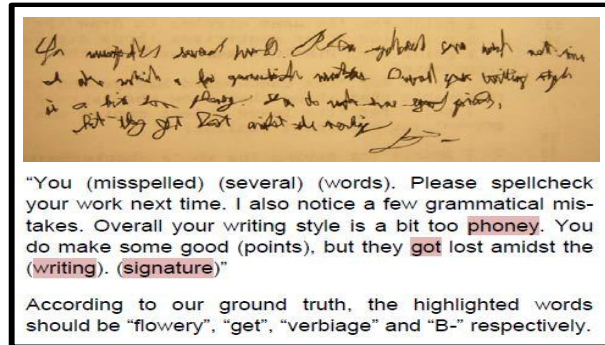 You misspelled several words. Please spellcheck your work next time.
I also notice a few grammatical mistakes. Overall your writing style
is a bit too flowery. You do make some good points,
but they get lost amidst the verbiage
B-
“You (misspelled) (several) (words). Please spellcheck
your work next time. I also notice a few grammatical mis-
takes. Overall your writing style is a bit too phoney. You
do make some good (points), but they got lost amidst the
(writing). (signature)”
According to our ground truth, the highlighted words
should be “flowery”, “get”, “verbiage” and “B-” respectively.